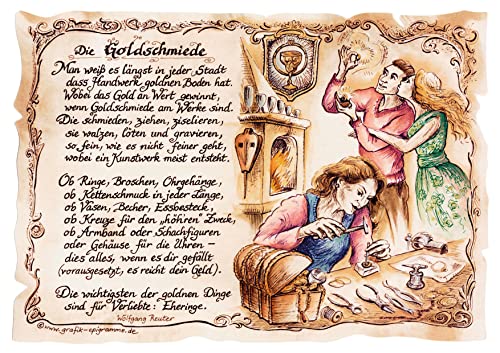 Die Goldschmiede
Man weiß es längst in jeder Stadt
dass Handwerk goldnen Boden hat.
Wobei das Gold an Wert gewinnt,
wenn Goldschmiede am Werke sind.
Die schmieden, ziehen, ziselieren,
sie walzen, löten und gravieren,
so fein, wie es nicht feiner geht,
wobei ein Kunstwerk meist entsteht.
Ob Ringe, Broschen, Ohrgehänge,
ob Kettenschmuck in jeder Länge,
ob Vasen, Becher, Essbesteck,
ob Kreuze für den „höhren" Zweck,
ob Armband oder Schachfiguren
oder Gehäuse für die Uhren –
dies alles, wenn es dir gefällt
(vorausgesetzt, es reicht dein Geld).
Die wichtigsten der goldnen Dinge
sind für Verliebte: Eheringe.
Wolfgang Reuter
©www.grafik-epigramme.de